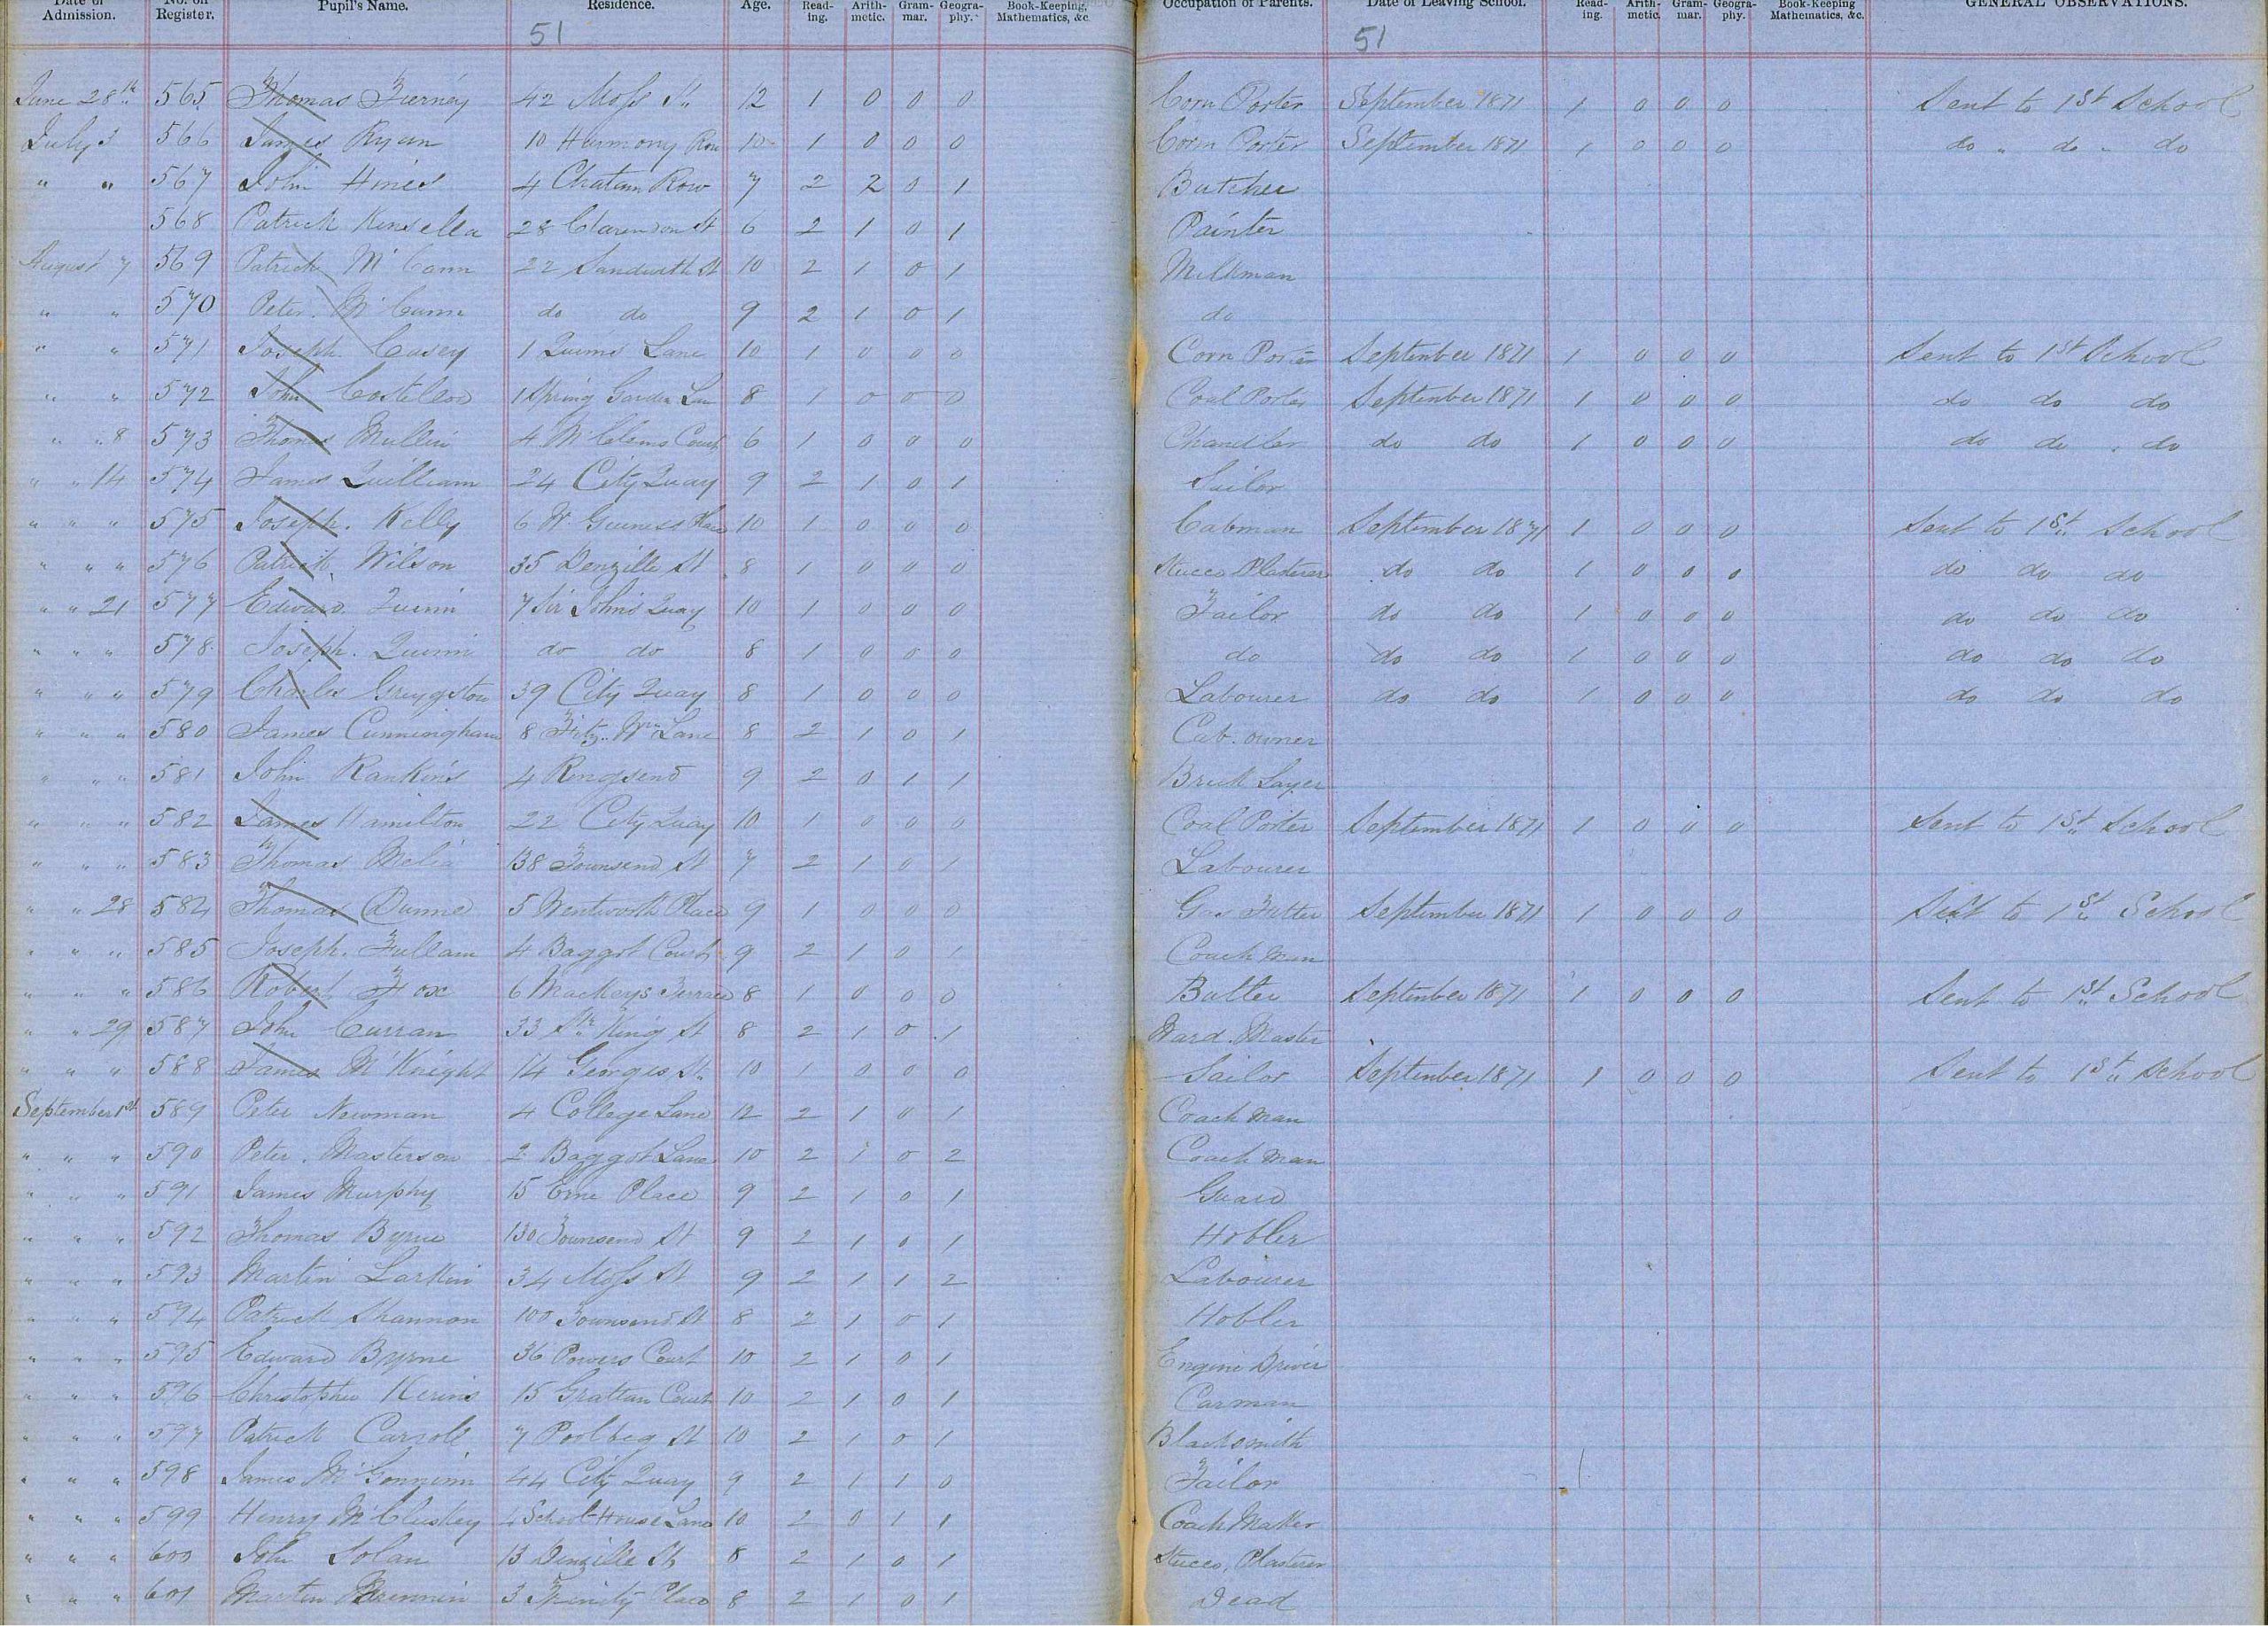 Date of Admission. No. on Register. Pupil's Name. Residence. Age. Read-ing. Arith-metic. Gram-mar. Geogra-phy. Book-Keeping, Mathematics, &c. Occupation of Parents. Date of Leaving School. Read-ing. Arith-metic. Gram-mar. Geogra-phy. Book-Keeping Mathematics, &c. GENERAL OBSERVATIONS.
51 51
June 28th 565 Thomas Tierney 42 Moss St. 12 1 0 0 0 Corn Porter September 1871 1 0 0 0 Sent to 1st School
July 3 566 James Ryan 10 Harmony Row 10 1 0 0 0 Corn Porter September 1871 1 0 0 0 do " do " do
" " 567 John Hines 4 Chatam Row 7 2 2 0 1 Butcher
568 Patrick Kinsella 28 Clarendon St 6 2 1 0 1 Painter
August 7 569 Patrick McCann 22 Sandwith St 10 2 1 0 1 Milkman
" " 570 Peter McCann do do 9 2 1 0 1 do
" " 571 Joseph Casey 1 Quinns Lane 10 1 0 0 0 Corn Porter September 1871 1 0 0 0 Sent to 1st School
" " 572 John Costelloe 1 Spring Garden Lane 8 1 0 0 0 Coal Porter September 1871 1 0 0 0 do do do
" " 8 573 Thomas Mullin 4 Court 6 1 0 0 0 Chandler do do 1 0 0 0 do do do
" " 14 574 James Quilliam 24 City Quay 9 2 1 0 1 Sailor
" " " 575 Joseph Kelly 6 W. Guiness 10 1 0 0 0 Cabman September 1871 1 0 0 0 Sent to 1st School
" " " 576 Patrick Wilson 35 Denzille St 8 1 0 0 0 Stucco Plasterer do do 1 0 0 0 do do do
" " 21 577 Edward Quinn 7 Sir John's Quay 10 1 0 0 0 Tailor do do 1 0 0 0 do do do
" " " 578 Joseph Quinn do do 8 1 0 0 0 do do do 1 0 0 0 do do do
" " " 579 Charles Greygston 39 City Quay 8 1 0 0 0 Labourer do do 1 0 0 0 do do do
" " " 580 James Cunningham 8 Fitz. Wm Lane 8 2 1 0 1 Cab. owner
" " " 581 John Rankins 4 Ringsend 9 2 0 1 1 Brick Layer
" " " 582 James Hamilton 22 City Quay 10 1 0 0 0 Coal Porter September 1871 1 0 0 0 Sent to 1st School
" " " 583 Thomas Melia 138 Townsend St 7 2 1 0 1 Labourer
" " 28 584 Thomas Dunne 5 Wentworth Place 9 1 0 0 0 Gas Fitter September 1871 1 0 0 0 Sent to 1st School
" " " 585 Joseph Fullam 4 Baggot Court 9 2 1 0 1 Coach Man
" " " 586 Robert Fox 6 Mackeys Terrace 8 1 0 0 0 Butler September 1871 1 0 0 0 Sent to 1st School
" " 29 587 John Curran 33 Sth King St 8 2 1 0 1 Ward. Master
" " " 588 James McKnight 14 Georges St. 10 1 0 0 0 Sailor September 1871 1 0 0 0 Sent to 1st School
September 1st 589 Peter Newman 4 College Lane 12 2 1 0 1 Coach Man
" " " 590 Peter Masterson 2 Baggot Lane 10 2 1 0 2 Coach Man
" " " 591 James Murphy 15 Erne Place 9 2 1 0 1 Guard
" " " 592 Thomas Byrne 130 Townsend St 9 2 1 0 1 Hobler
" " " 593 Martin Larkin 34 Moss St 9 2 1 1 2 Labourer
" " " 594 Patrick Shannon 100 Townsend St 8 2 1 0 1 Hobler
" " " 595 Edward Byrne 36 Powers Court 10 2 1 0 1 Engine Driver
" " " 596 Christopher Kerins 15 Grattan Court 10 2 1 0 1 Carman
" " " 597 Patrick Carroll 7 Poolbeg St 10 2 1 0 1 Blacksmith
" " " 598 James 44 City Quay 9 2 1 1 0 Tailor
" " " 599 Henry McCluskey 4 School-House Lane 10 2 0 1 1 Coach Maker
" " " 600 John Solan 13 Denzille St 8 2 1 0 1 Stucco, Plasterer
" " " 601 Martin Brennin 3 Trinity Place 8 2 1 0 1 Dead